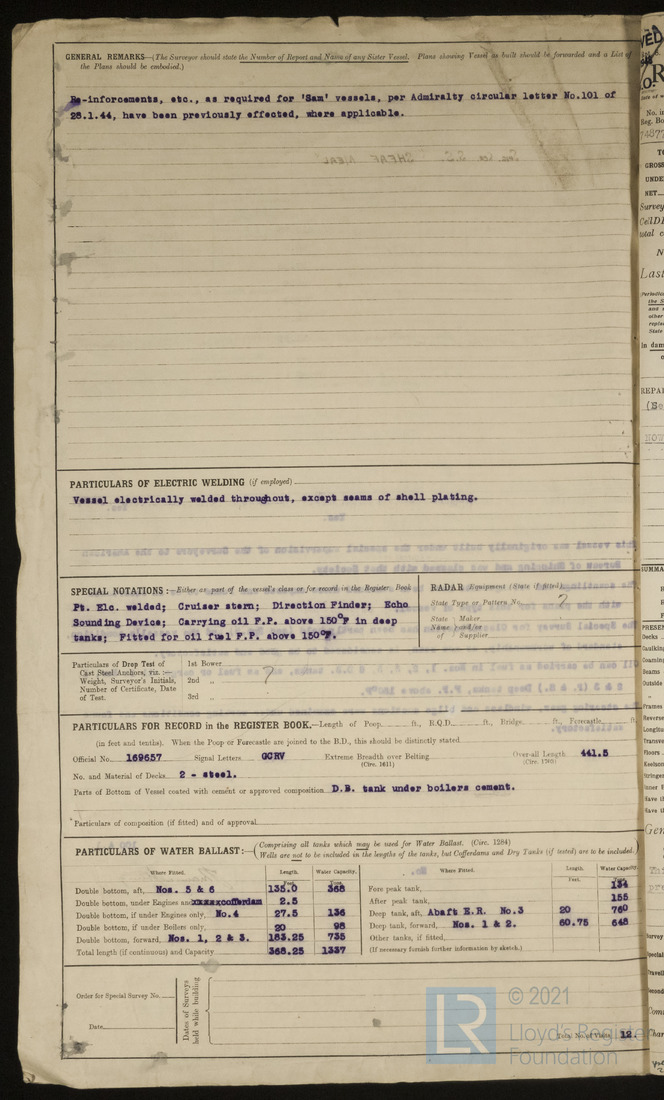 GENERAL REMARKS—(The Surveyor should state the Number of Report and Name of any Sister Vessel. Plans showing Vessel as built should be forwarded and a List of
the Plans should be embodied.)
Re-inforcements, etc., as required for 'Sam' vessels, per Admiralty circular letter No.101 of
28.1.44, have been previously effected, where applicable.
PARTICULARS OF ELECTRIC WELDING (if employed)
Vessel electrically welded throughout, except seams of shell plating.
SPECIAL NOTATIONS:—Either as part of the vessel's class or for record in the Register Book
Pt. Elc. welded; Cruiser stern; Direction Finder; Echo
Sounding Device; Carrying oil F.P. above 150°F in deep
tanks; Fitted for oil fuel F.P. above 150°F.
RADAR Equipment (State if fitted)
State Type or Pattern No. ?
State Maker
Name and/or
of Supplier
Particulars of Drop Test of
Cast Steel Anchors, viz.:—
Weight, Surveyor's Initials,
Number of Certificate, Date
of Test.
1st Bower
2nd " ?
3rd "
PARTICULARS FOR RECORD in the REGISTER BOOK.—Length of Poop ft., R.Q.D. ft., Bridge ft., Forecastle ft.
(in feet and tenths). When the Poop or Forecastle are joined to the B.D., this should be distinctly stated
Official No. 169657 Signal Letters GCRV Extreme Breadth over Belting Over-all Length 441.5
(Circ. 1611) (Circ. 1703)
No. and Material of Decks 2 - steel.
Parts of Bottom of Vessel coated with cement or approved composition D.B. tank under boilers cement.
Particulars of composition (if fitted) and of approval
PARTICULARS OF WATER BALLAST:— Comprising all tanks which may be used for Water Ballast. (Circ. 1284)
Wells are not to be included in the lengths of the tanks, but Cofferdams and Dry Tanks (if tested) are to be included.
Where Fitted. Length. Water Capacity. Where Fitted. Length. Water Capacity.
Feet. Tons. Feet. Tons.
Double bottom, aft, Nos. 5 & 6 135.0 368 Fore peak tank, 134
Double bottom, under Engines and cofferdam 2.5 After peak tank, 155
Double bottom, if under Engines only, No.4 27.5 136 Deep tank, aft, Abaft E.R. No.3 20 760
Double bottom, if under Boilers only, 20 98 Deep tank, forward, Nos. 1 & 2. 60.75 648
Double bottom, forward, Nos. 1, 2 & 3. 183.25 735 Other tanks, if fitted,
Total length (if continuous) and Capacity 368.25 1337 (If necessary furnish further information by sketch.)
Order for Special Survey No.
Date
Dates of Surveys
held while building
Total No. of Visits 12.
LR
© 2021
Lloyd's Register
Foundation